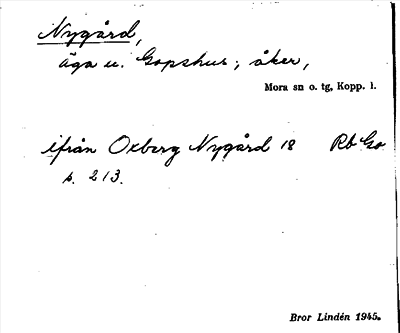 Nygård,
äga u. Gopshus; åker,
Mora sn o. tg, Kopp. l.
ifrån Oxberg Nygård 18 Rb Go
s. 213.
Bror Lindén 1945.